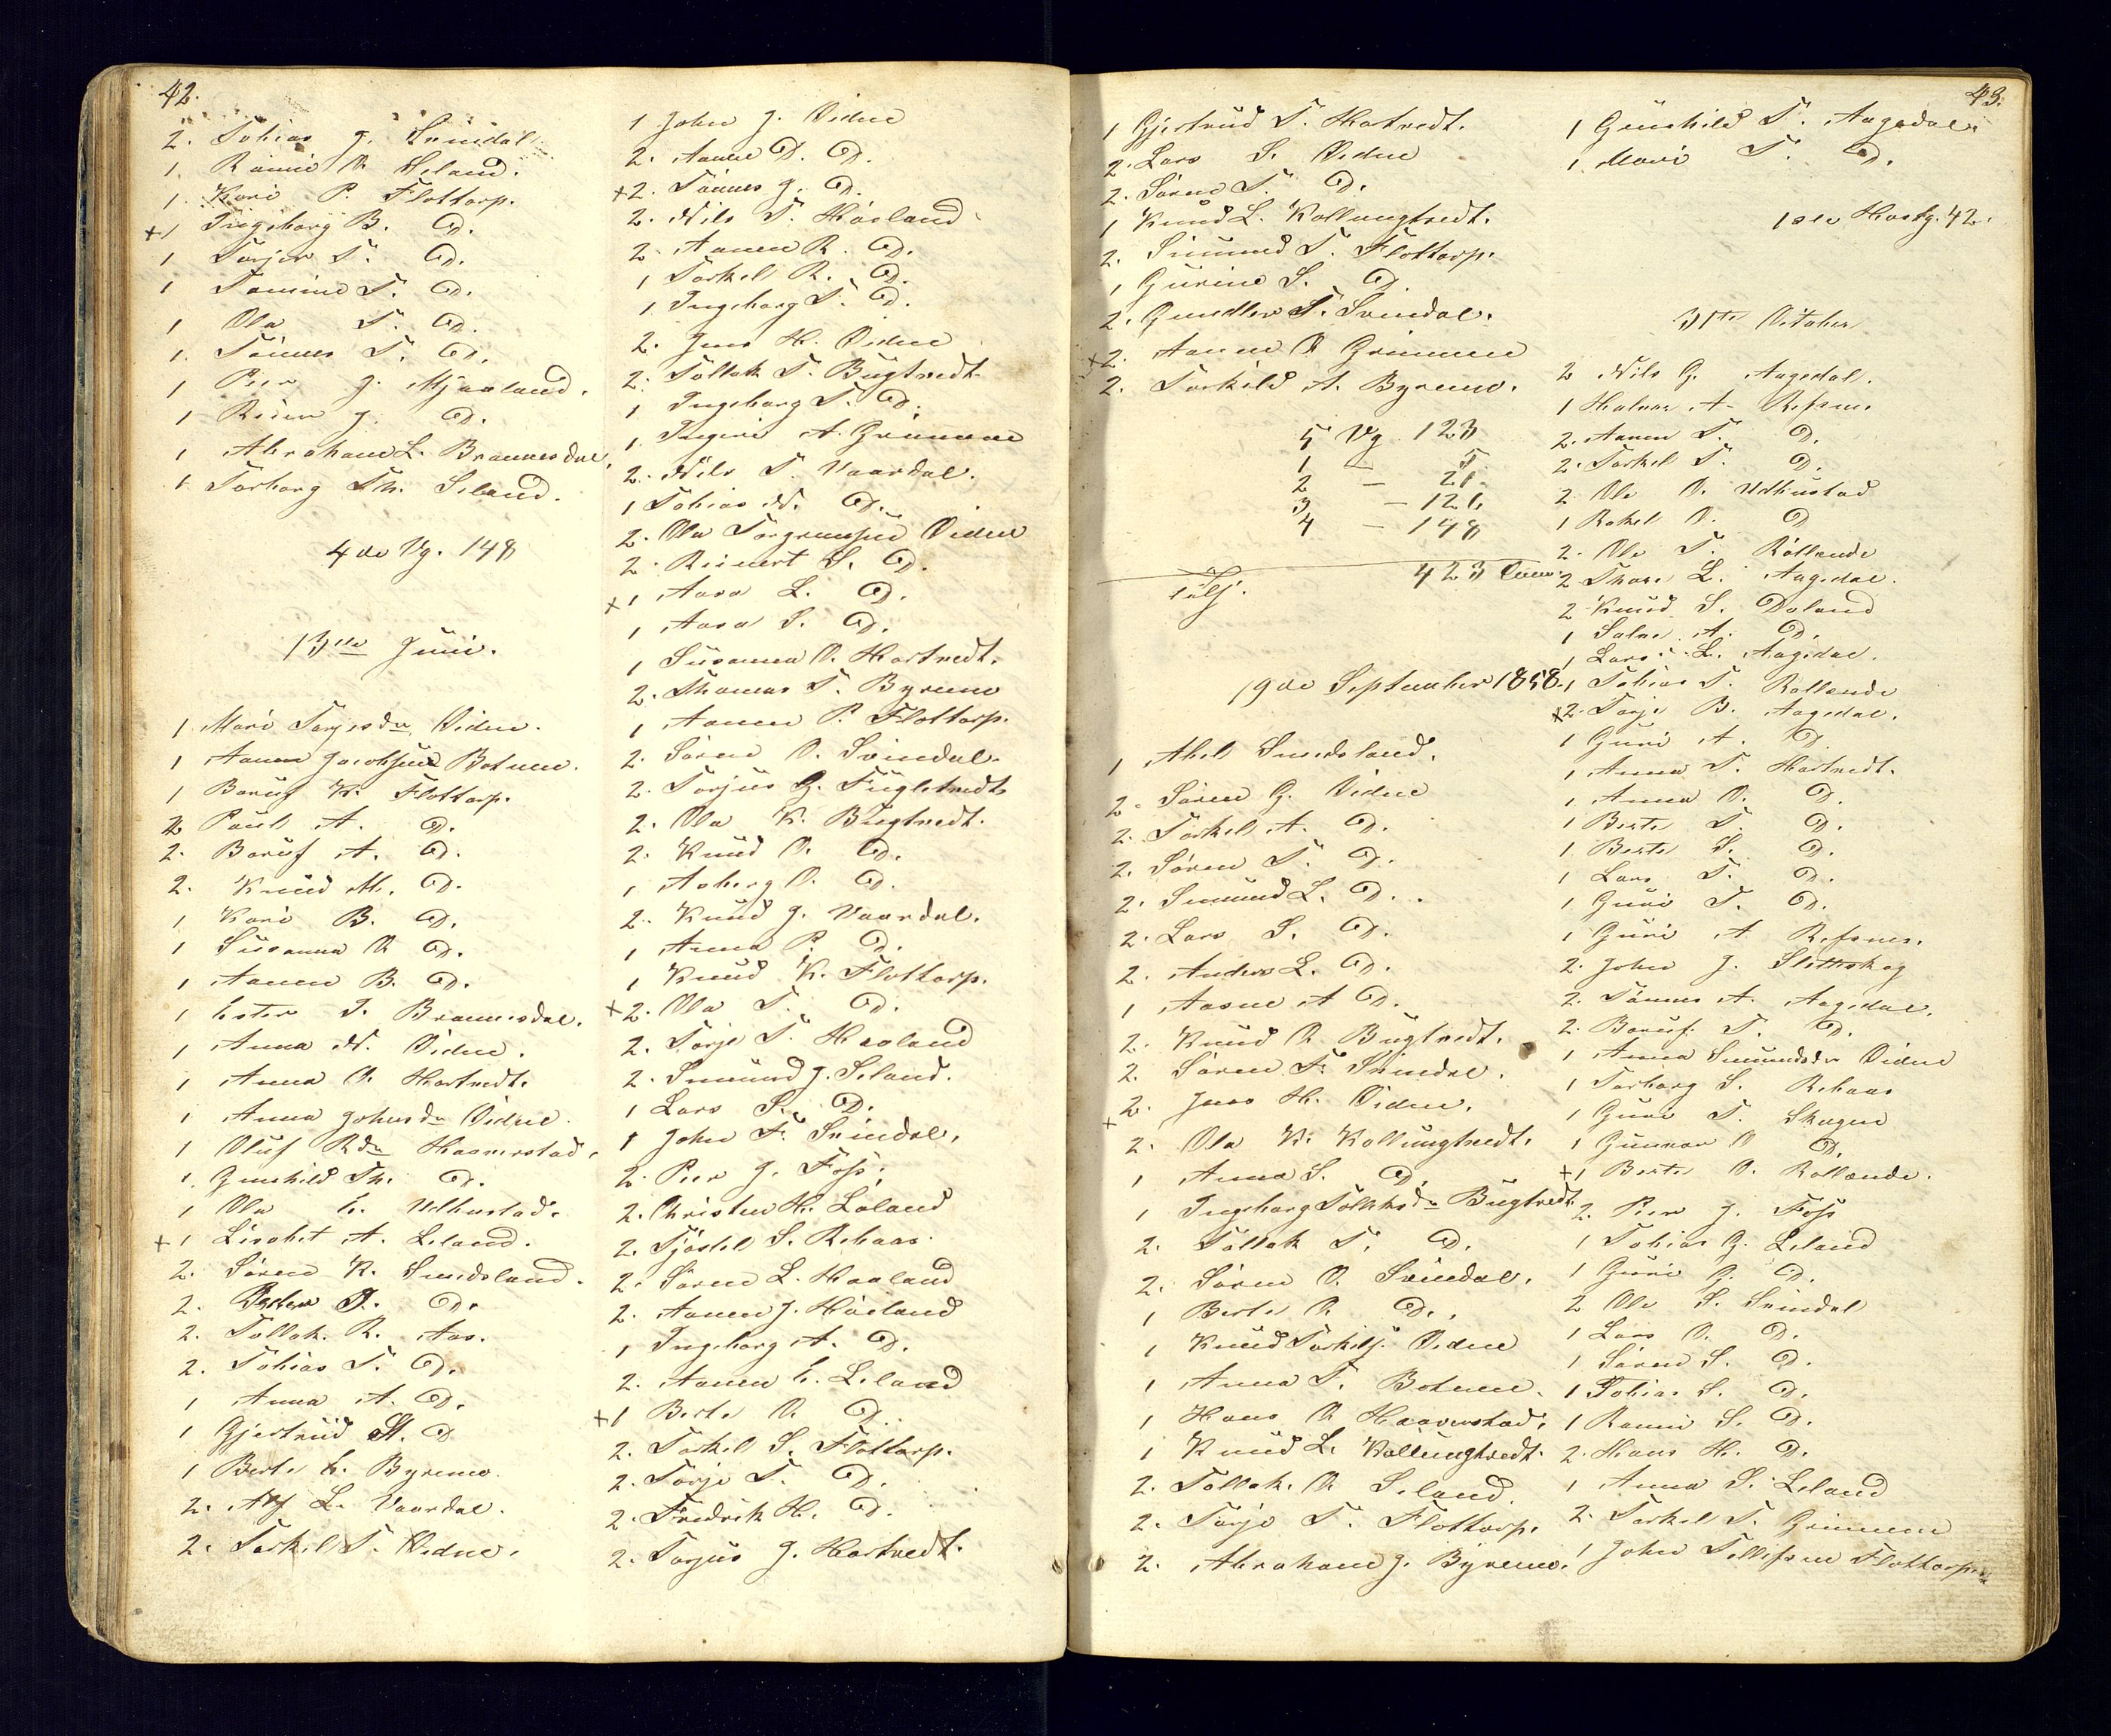 42.
2. Tobias J. Svindal
1. Rannei O. Seland.
1. Kari P. Flottorp.
+1 Ingeborg B. D.
1 Torjer T. D.
1 Tomine T. D.
1 Ola T. D.
1. Tönnes T. D.
1 Peer J. Mjaaland.
1 Reier J. D.
1 Abraham L. Brannesdal.
1 Torborg Th. Seland.
4de Vg. 148
13de Juni.
1 Mari Torjesdr Vidne.
1 Aanen Jacobsen Botnen.
1 Baruf K. Flottorp.
2 Paul A. D.
2. Baruf A. D.
2. Knud M. D.
1 Kari B. D.
1 Susanna O. D.
1 Aanen B. D.
1 Ester T. Brannesdal.
1 Anna N. Vidne.
1 Anna O. Hortvedt.
1 Anna Johnsdr Vidne
1 Oluf Rdr Haaverstad.
1. Gunhild Th. D.
1 Ola E. Udhustad.
+1 Lisabet A. Leland.
2. Sören K. Smedsland.
2. Peder J. D.
2. Tollak. R. Aas.
2. Tobias T. D.
1 Anna A. D.
1 Gjertrud A. D
1 Berte E. Byremo.
2. Alf L. Vaardal.
2. Torkil T. Vidne.
1 John J. Vidne
2. Aanen D. D.
+2. Tönnes J. D.
2. Nils T. Höiland
2. Aanen R. D.
1 Torkel R. D.
1 Ingeborg T. D.
2. Jens H. Vidne
2. Tollak T. Bügtvedt.
1 Ingeborg T. D.
1. Ingeri A. Grimmene
2. Nils T. Vaardal.
1 Tobias N. D.
2. Ola Torgrimsen Vidne
2. Reinert S. D.
+1 Aasa L. D.
1 Aasa S. D.
1 Susanna O. Hortvedt.
2. Thomas T. Byremo
1 Aanen P. Flottorp.
2. Sören O. Svindal.
2. Torjus G. Fuglestvedt
2. Ola K. Bügtvedt.
2. Knud O. D.
1 Asberg O. D.
2. Knud J. Vaardal.
1 Anna P. D.
1 Knud K. Flottorp.
+2. Ola T. D.
2. Torje T. Haaland
2. Smund J. Seland.
1 Lars S. D.
1 John F. Svindal.
2. Peer J. Foss.
2. Christen H. Loland
2. Tjöstel S. Rebaas.
2. Sören L. Haaland
2. Aanen J. Höiland
1 Ingeborg A. D.
2. Aanen E. Leland
+1 Berte O. D.
2. Torkel S. Flottorp.
2. Torje T. D.
2. Fredrik H. D.
2. Torjus J. Hortvedt.
43.
1 Gjertrud T. Hortvedt.
2. Lars S. Vidne
2. Sören T. D.
1 Knud L. Kollungtvedt.
2. Smund T. Flottorp.
1 Gurine S. D.
2. Gundlev T. Svindal.
+2. Aanen O Grimmene
2. Torkild A. Byremo.
5 Vg. 123
1 — 5
2 — 21.
3 — 126
4 — 148
Tilj. 423
19de September 1858.
1 Abel Smedsland.
2. Sören G. Vidne
2. Torkel A. D.
2. Sören T. D.
2. Smund L. D.
2. Lars S. D.
2. Anders L. D.
1 Aasne A D.
2. Knud O. Bugtvedt.
2. Sören F. Svindal.
+2. Jens H. Vidne.
2. Ola K. Kollungtvedt.
1 Anna S. D.
1 Ingeborg Tollaksdr Bugtvedt.
2. Tollak T. D.
2. Sören O. Svindal.
1 Berte O. D.
1 Knud Torkilsj. Vidne
1 Anna T. Botnen.
1 Hans O. Haaverstad.
1 Knud L. Kollungtvedt.
2. Tollak. O. Seland.
2. Torje T. Flottorp.
2. Abraham J. Byremo.
1 Gunhild T. Aagedal.
1. Mari T. D.
1ste Hartg. 42.
31te October
2 Nils G. Aagedal.
1 Halvor A. Refsnes.
2. Aanen T. D.
2. Torkel T. D.
2 Ole O. Udhustad
1 Rakel O. D
2. Ole T. Röllende
2 Thore L. Aagedal.
2 Knud S. Doland
1 Salve A. D.
1 Lars L. Aagedal.
1 Tobias T. Rollende
+2. Torje B. Aagedal.
1 Guri A. D.
1 Anna T. Hortvedt.
1 Anna O. D.
1 Berte T. D.
1 Berte S. D.
1 Lars T. D.
1 Guri T. D.
1 Guri A Refsnes.
2. John J. Sletteskog
2. Tönnes A. Aagedal.
2. Baruf. T. D.
1 Anna Smundsdr Vidne
1 Torborg S. Rebaas
1 Guri T. Skagen
1 Gunnar O D.
+1 Berte O. Rollende.
2. Peer J. Foss
1 Tobias G. Leland
1 Guri G. D.
2 Ole S. Svindal
1 Lars O. D.
1 Sören S. D.
1 Tobias S. D.
1 Rannei S. D.
2. Hans H. D.
1 Anna S. Leland
2. Torkel T. Grimmene
1 John Tellefsen Flottorp.